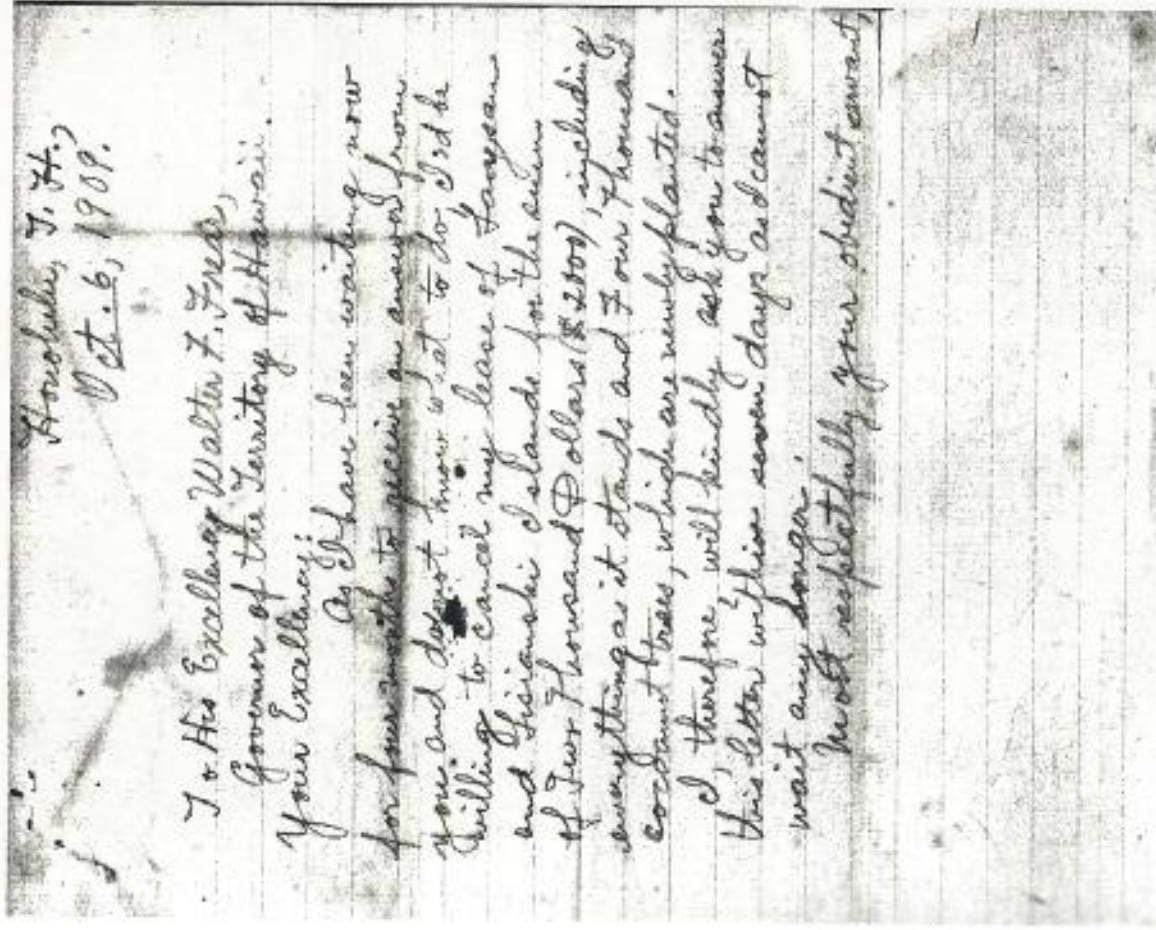 Honolulu, T. H.,
Oct. 6, 1909.
To His Excellency Walter F. Frear,
Governor of the Territory of Hawaii.
Your Excellency:
As I have been waiting now
for four months to receive an answer from
you and do not know what to do I'd be
willing to cancel my lease of Laaysan
and Lisianski Islands for the sum
of Two Thousand Dollars ($2000), including
everything as it stands and Four Thousand
cocoanut trees, which are newly planted.
I, therefore, will kindly ask you to answer
this letter within seven days as I cannot
wait any longer.
Most respectfully your obedient servant,